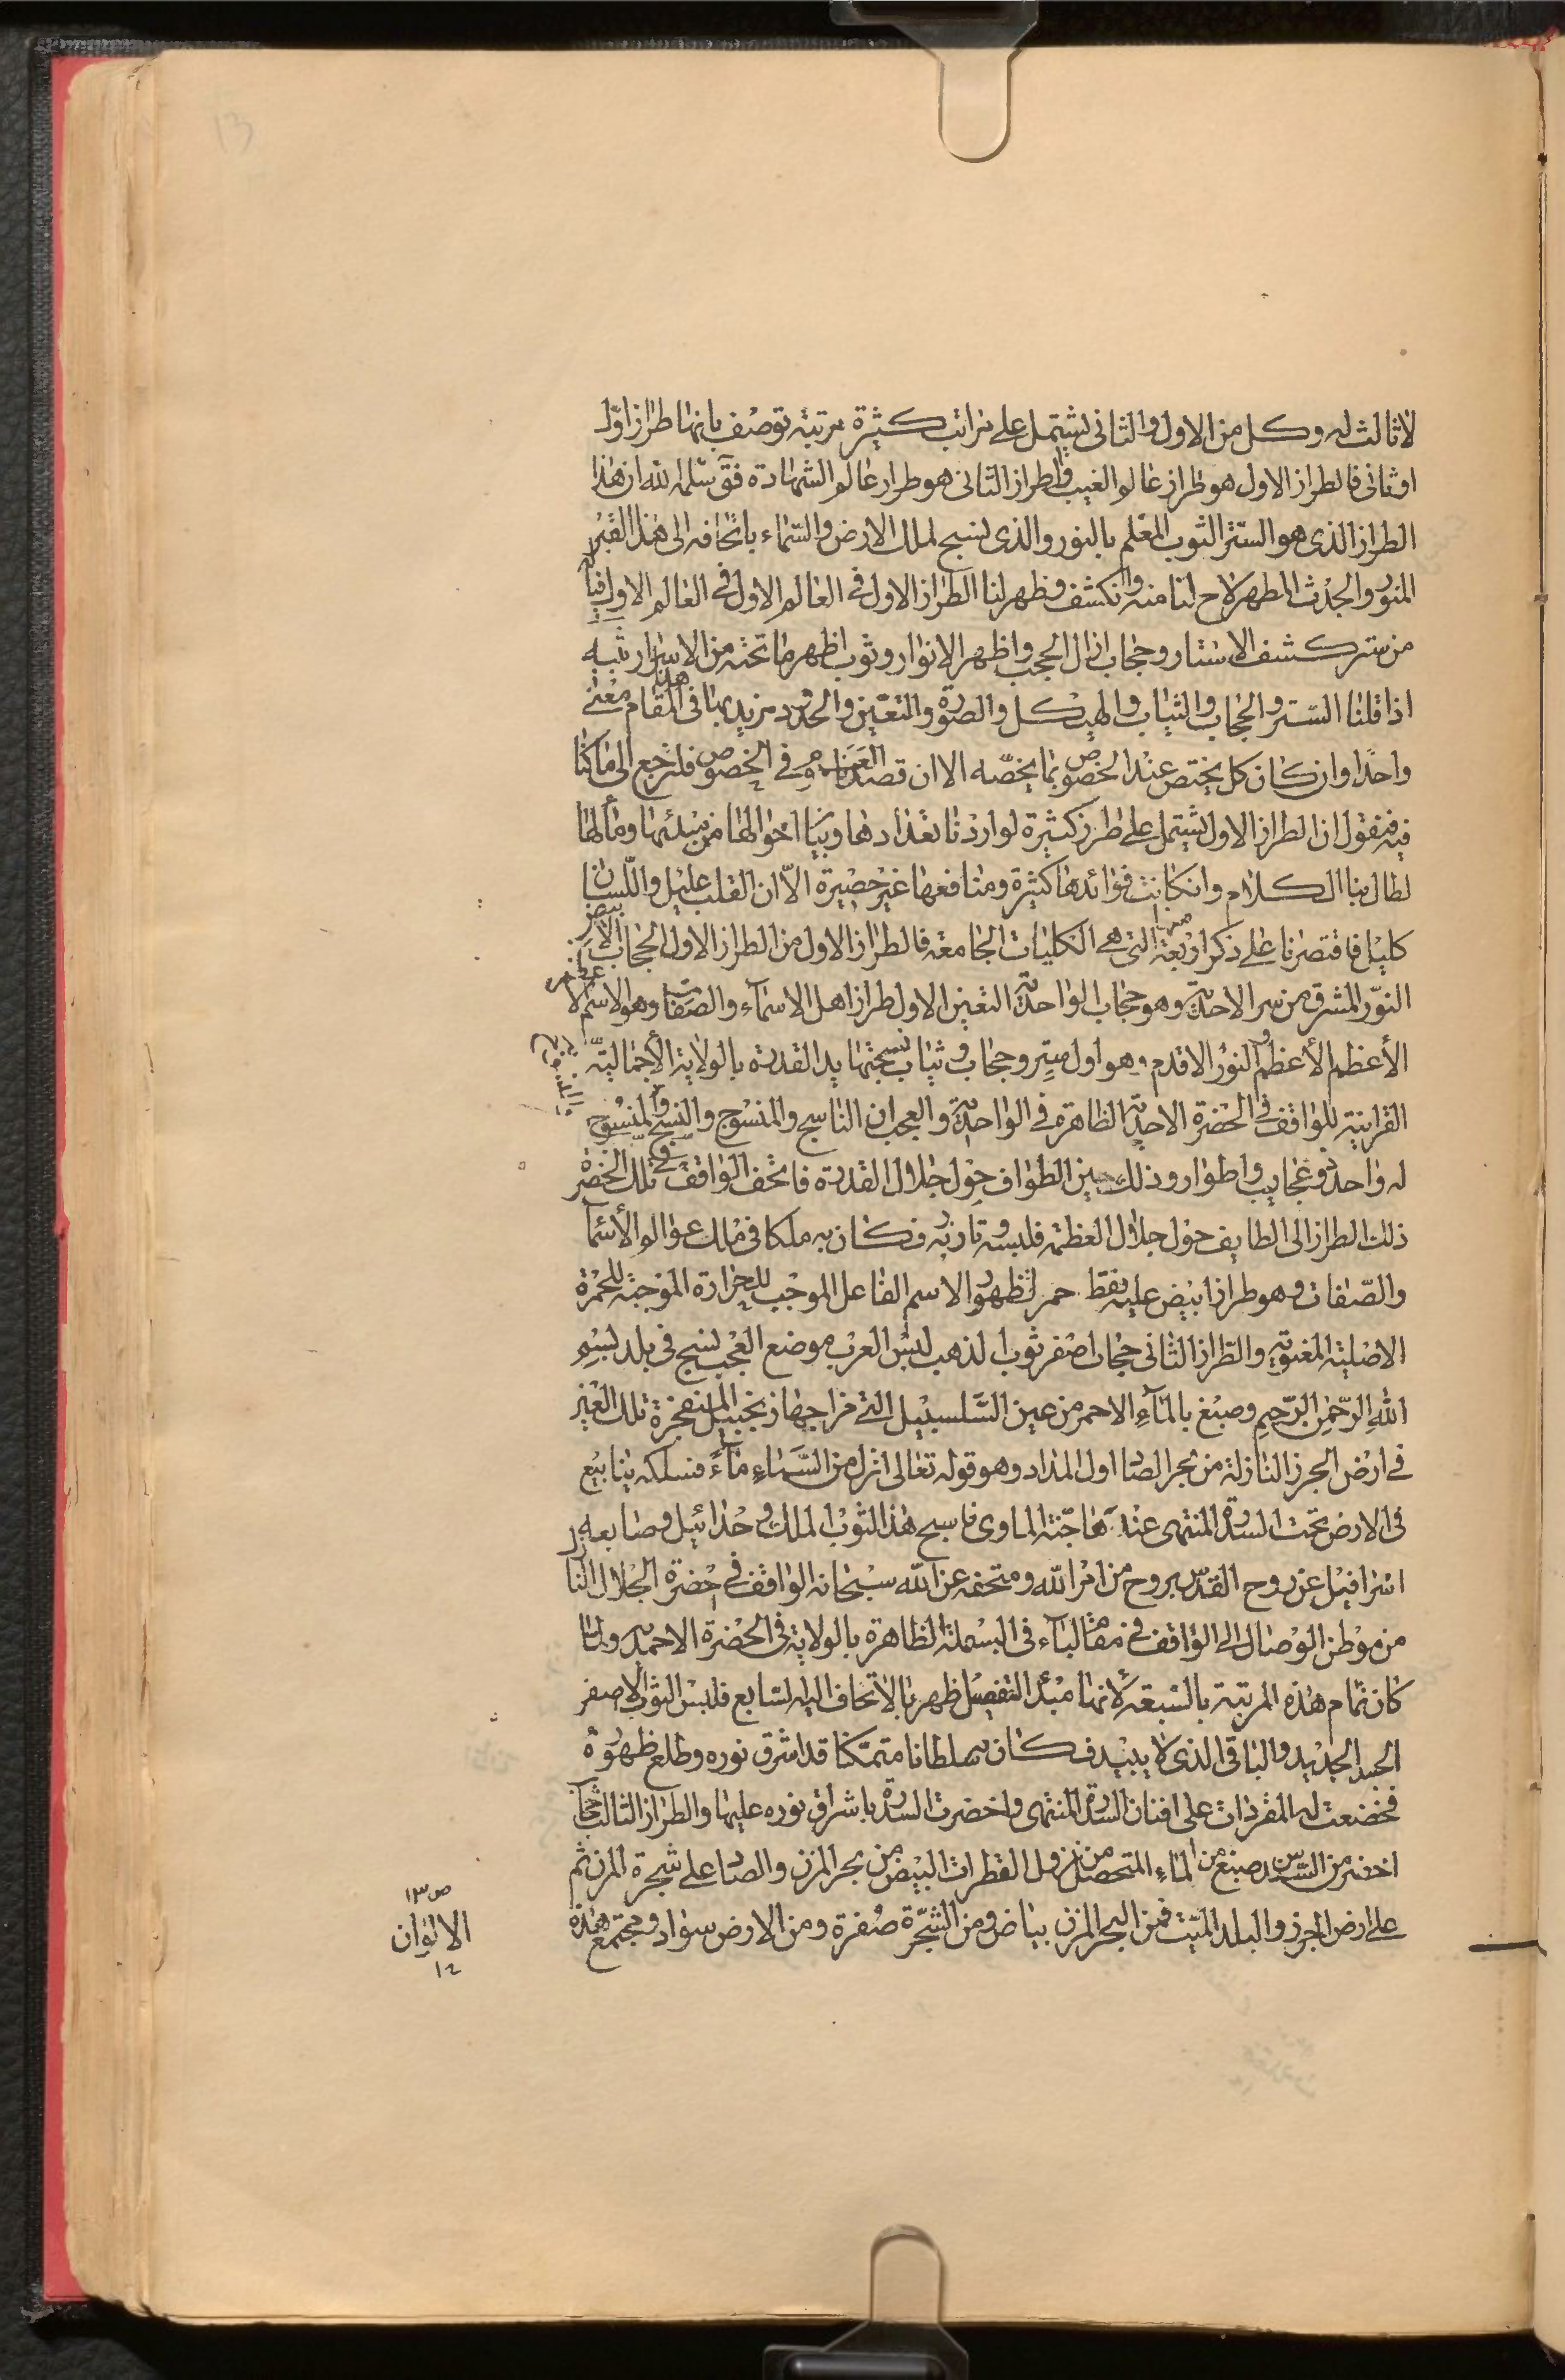 13
لا ثالث له وكل من الاول والثانى يشتمل على مراتب كثيرة مرتبة توصف بانها طراز اول
او ثانى فالطراز الاول هو طراز عالم الغيب والطراز الثانى هو طراز عالم الشهادة فق سلمه الله ان هذا
الطراز الذى هو الستر الثوب المعلم بالنور والذى نسج لملك الارض والسماء باتحافه الى هذا القبر
المنور والجدث المطهر لاح لنا منه وانكشف وظهر لنا الطراز الاول فى العالم الاول فى العالم الاول فيا له
من ستر كشف الاستار وحجاب ازال الحجب واظهر الانوار وثوب اظهر ما تحته من الاسرار تنبيه
اذا قلنا الستر والحجاب والثياب والهيكل والصورة والتعين والحدود نريد بها فى هذا المقام معنى
واحدا وان كان كل يختص عند الخصوص بما يخصه الا ان قصدنا العموم فى الخصوص فلنرجع الى ما كنا
فيه فنقول ان الطراز الاول يشتمل على طرز كثيرة لو اردنا تعدادها وبيان احوالها من مبدئها ومآلها
لطال بنا الكلام وانكانت فوائدها كثيرة ومنافعها غير حصيرة الا ان القلب عليل واللسان
كليل فاقتصرنا على ذكر اربعة منها التى هى الكليات الجامعة فالطراز الاول من الطراز الاول الحجاب الابيض
النور المشرق من سر الاحدية وهو حجاب الواحدية التعين الاول طراز اهل الاسماء والصفات وهو الاسم الاعظم
الأعظم الأعظم والنور الاقدم وهو اول ستر وحجاب وثياب نسجتها يد القدرة بالولاية الأجمالية
القرآنية للواقف فى الحضرة الاحدية الظاهرة فى الواحدية والعجب ان الناسج والمنسوج والنسج والمنسوج
له واحد ذو عجايب واطوار وذلك حين الطواف حول جلال القدرة فاتحف الواقف فى تلك الحضرة
ذلك الطراز الى الطايف حول جلال العظمة فلبسه وتازر به فكان به ملكا فى ملك عوالم الأسماء
والصفات وهو طراز ابيض عليه نقط حمر لظهور الاسم الفاعل الموجب للحرارة الموجبة للحمرة
الاصلية المعنوية والطراز الثانى حجاب اصفر ثوب الذهب لبس العرب موضع العجب نسج فى بلد بسم
الله الرحمن الرحيم وصبغ بالماء الاحمر من عين السلسبيل التى مزاجها زنجبيل المنفجرة تلك العين
فى ارض الجرز النازلة من بحر الصاد اول المداد وهو قوله تعالى انزل من السماء ماء فسلكه ينابيع
فى الارض تحت السدرة المنتهى عندها جنة الماوى ناسج هذا الثوب الملك وحدائيل وصابغه
اسرافيل عن روح القدس بروح من امر الله ومتحفه عن الله سبحانه الواقف فى حضرة الجلال النازل
من موطن الوصال الى الواقف فى مقام الباء فى البسملة الظاهرة بالولاية فى الحضرة الاحمدية ولما
كان تمام هذه المرتبة بالسبعة لأنها مبدء التفصيل ظهر بالاتحاف اليه السابع فلبس الثوب الاصفر
الجيد الجديد والباقى الذى لا يبيد فكان سلطانا متمكنا قد اشرق نوره وطلع ظهوره
فخضعت له المفردات على افنان السدرة المنتهى واخضرت السدرة باشراق نوره عليها والطراز الثالث حجاب
اخضر من السندس صبغ من الماء المتحصل من نزول القطرات البيض من بحر المزن والصاد على شجرة المزن ثم
على ارض الجرز والبلد الميت فمن البحر المزن بياض ومن الشجرة صفرة ومن الارض سواد ومجتمع هذه
ص١٣
الالوان
١٢